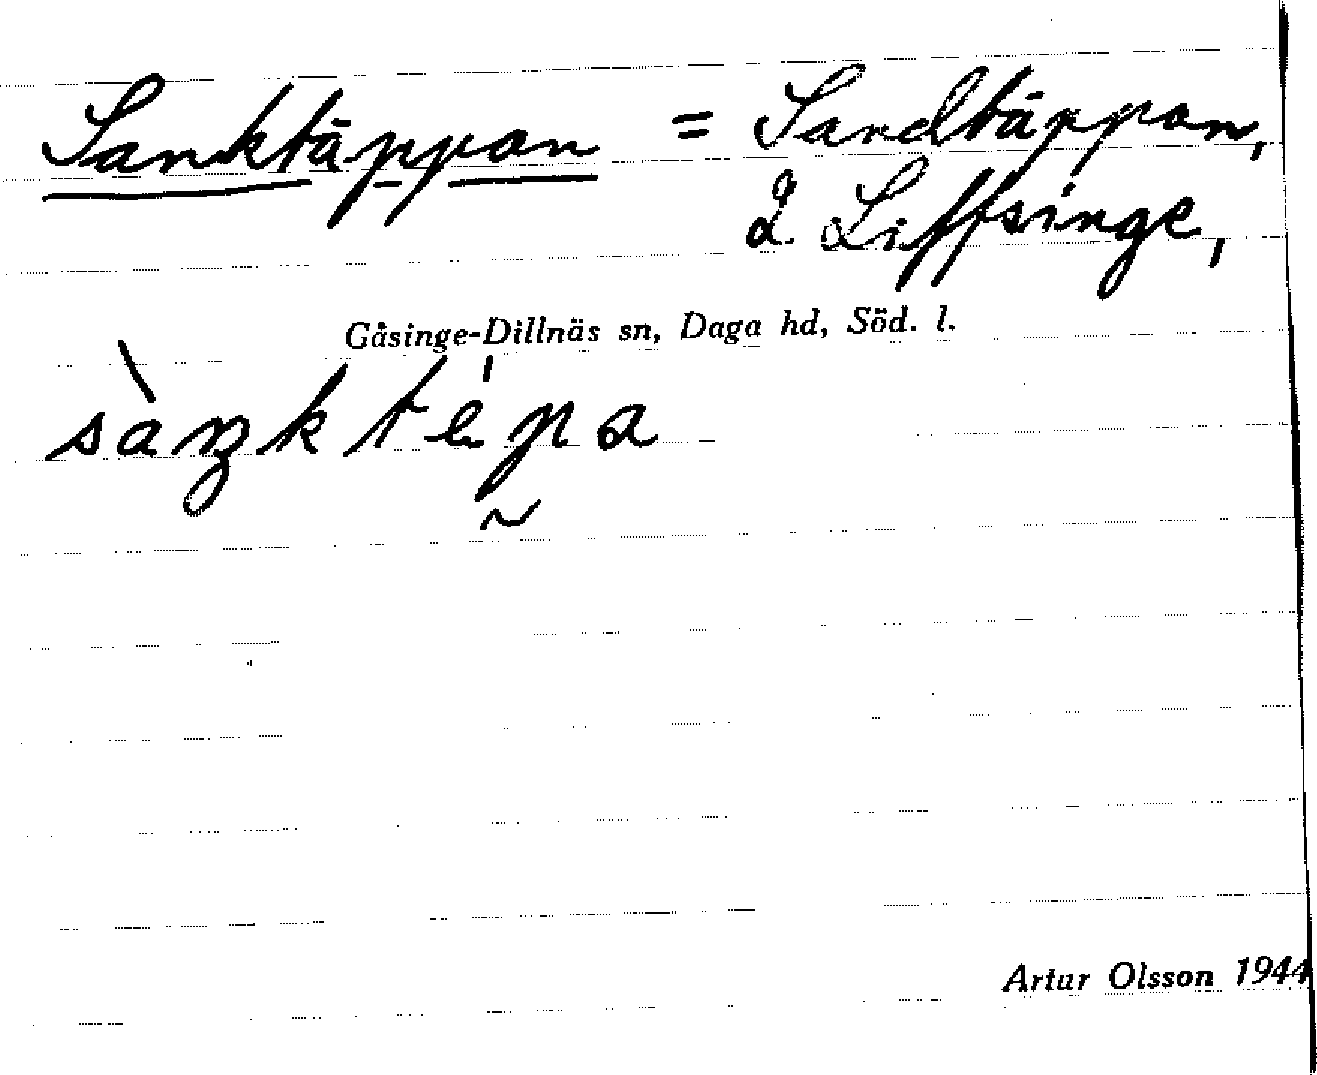 Sanktäppan = Sandtäppan,
Liffsinge,
Gåsinge-Dillnäs sn, Daga hd, Söd. l.
sàŋktépa
Artur Olsson 1944